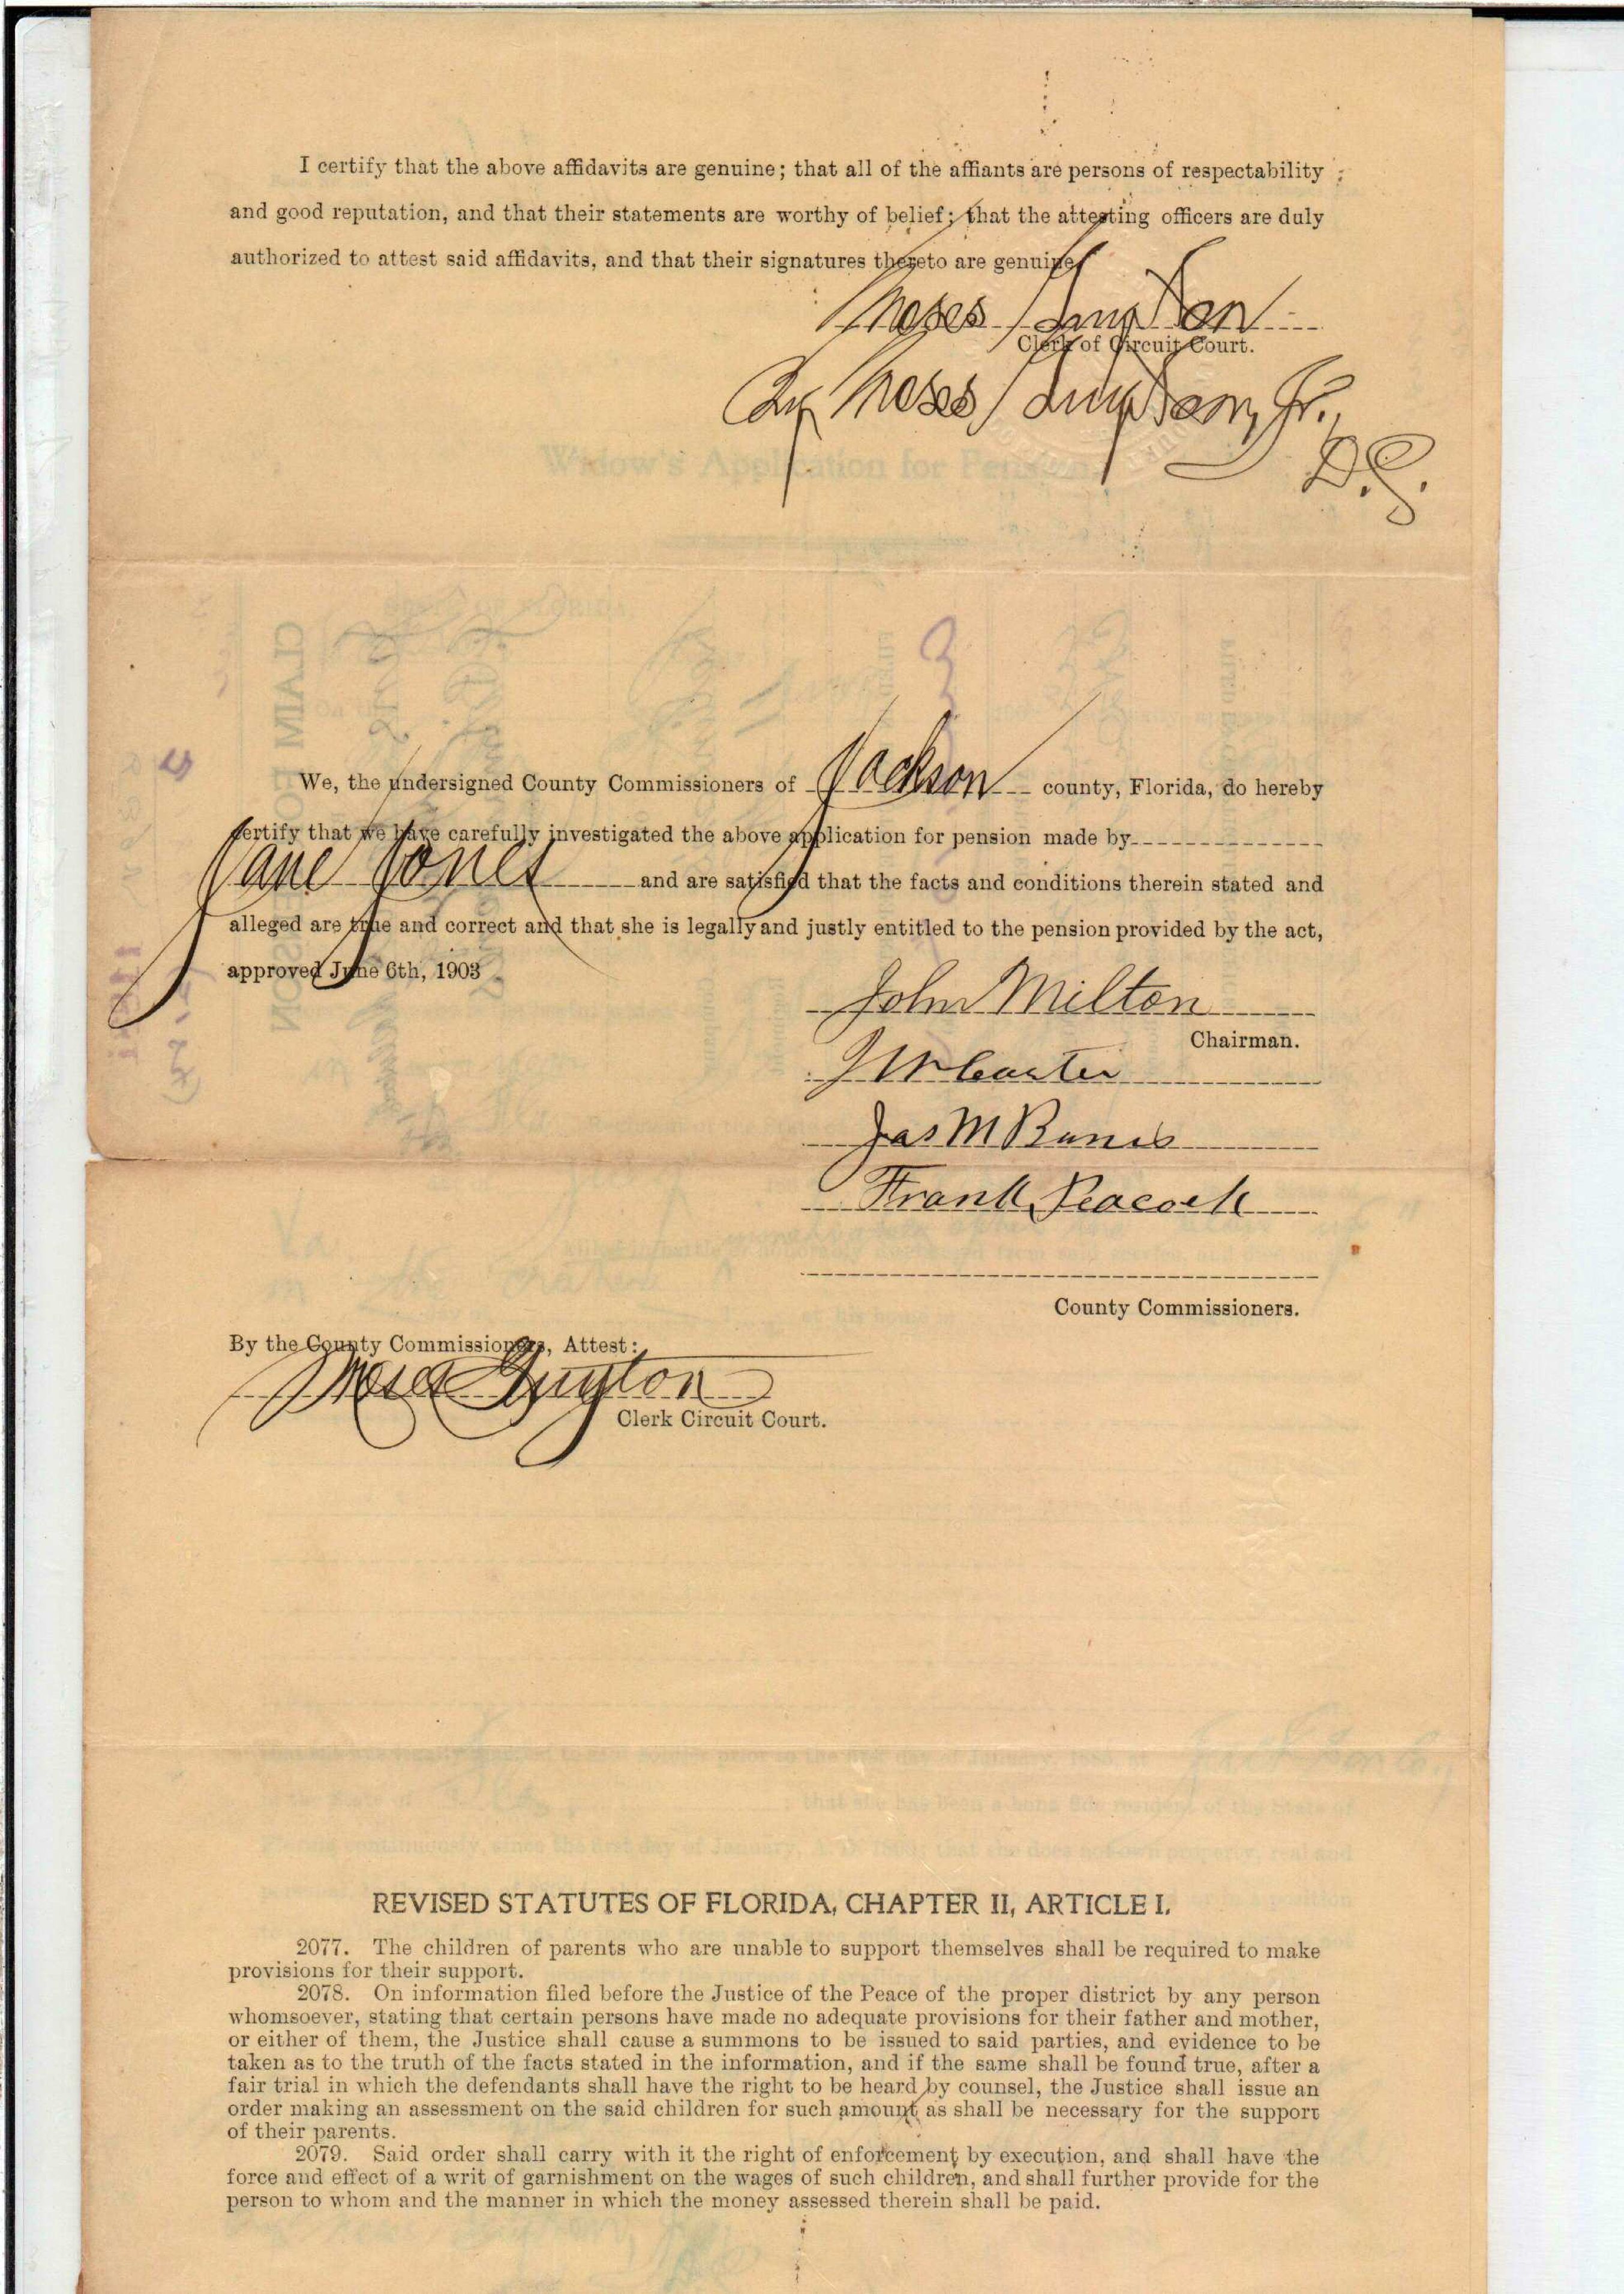 I certify that the above affidavits are genuine; that all of the affiants are persons of respectability
and good reputation, and that their statements are worthy of belief; that the attesting officers are duly
authorized to attest said affidavits, and that their signatures thereto are genuine.
Moses Guyton
Clerk of Circuit Court.
By Moses Guyton, Jr.,
D.C.
Widow's Application for Pension
We, the undersigned County Commissioners of Jackson county, Florida, do hereby
certify that we have carefully investigated the above application for pension made by
Jane Jones and are satisfied that the facts and conditions therein stated and
alleged are true and correct and that she is legally and justly entitled to the pension provided by the act,
approved June 6th, 1903
John Milton
Chairman.
Jas M
Frank Peacock
County Commissioners.
By the County Commissioners, Attest:
Moses Guyton
Clerk Circuit Court.
REVISED STATUTES OF FLORIDA, CHAPTER II, ARTICLE I.
2077. The children of parents who are unable to support themselves shall be required to make
provisions for their support.
2078. On information filed before the Justice of the Peace of the proper district by any person
whomsoever, stating that certain persons have made no adequate provisions for their father and mother,
or either of them, the Justice shall cause a summons to be issued to said parties, and evidence to be
taken as to the truth of the facts stated in the information, and if the same shall be found true, after a
fair trial in which the defendants shall have the right to be heard by counsel, the Justice shall issue an
order making an assessment on the said children for such amount as shall be necessary for the support
of their parents.
2079. Said order shall carry with it the right of enforcement by execution, and shall have the
force and effect of a writ of garnishment on the wages of such children, and shall further provide for the
person to whom and the manner in which the money assessed therein shall be paid.